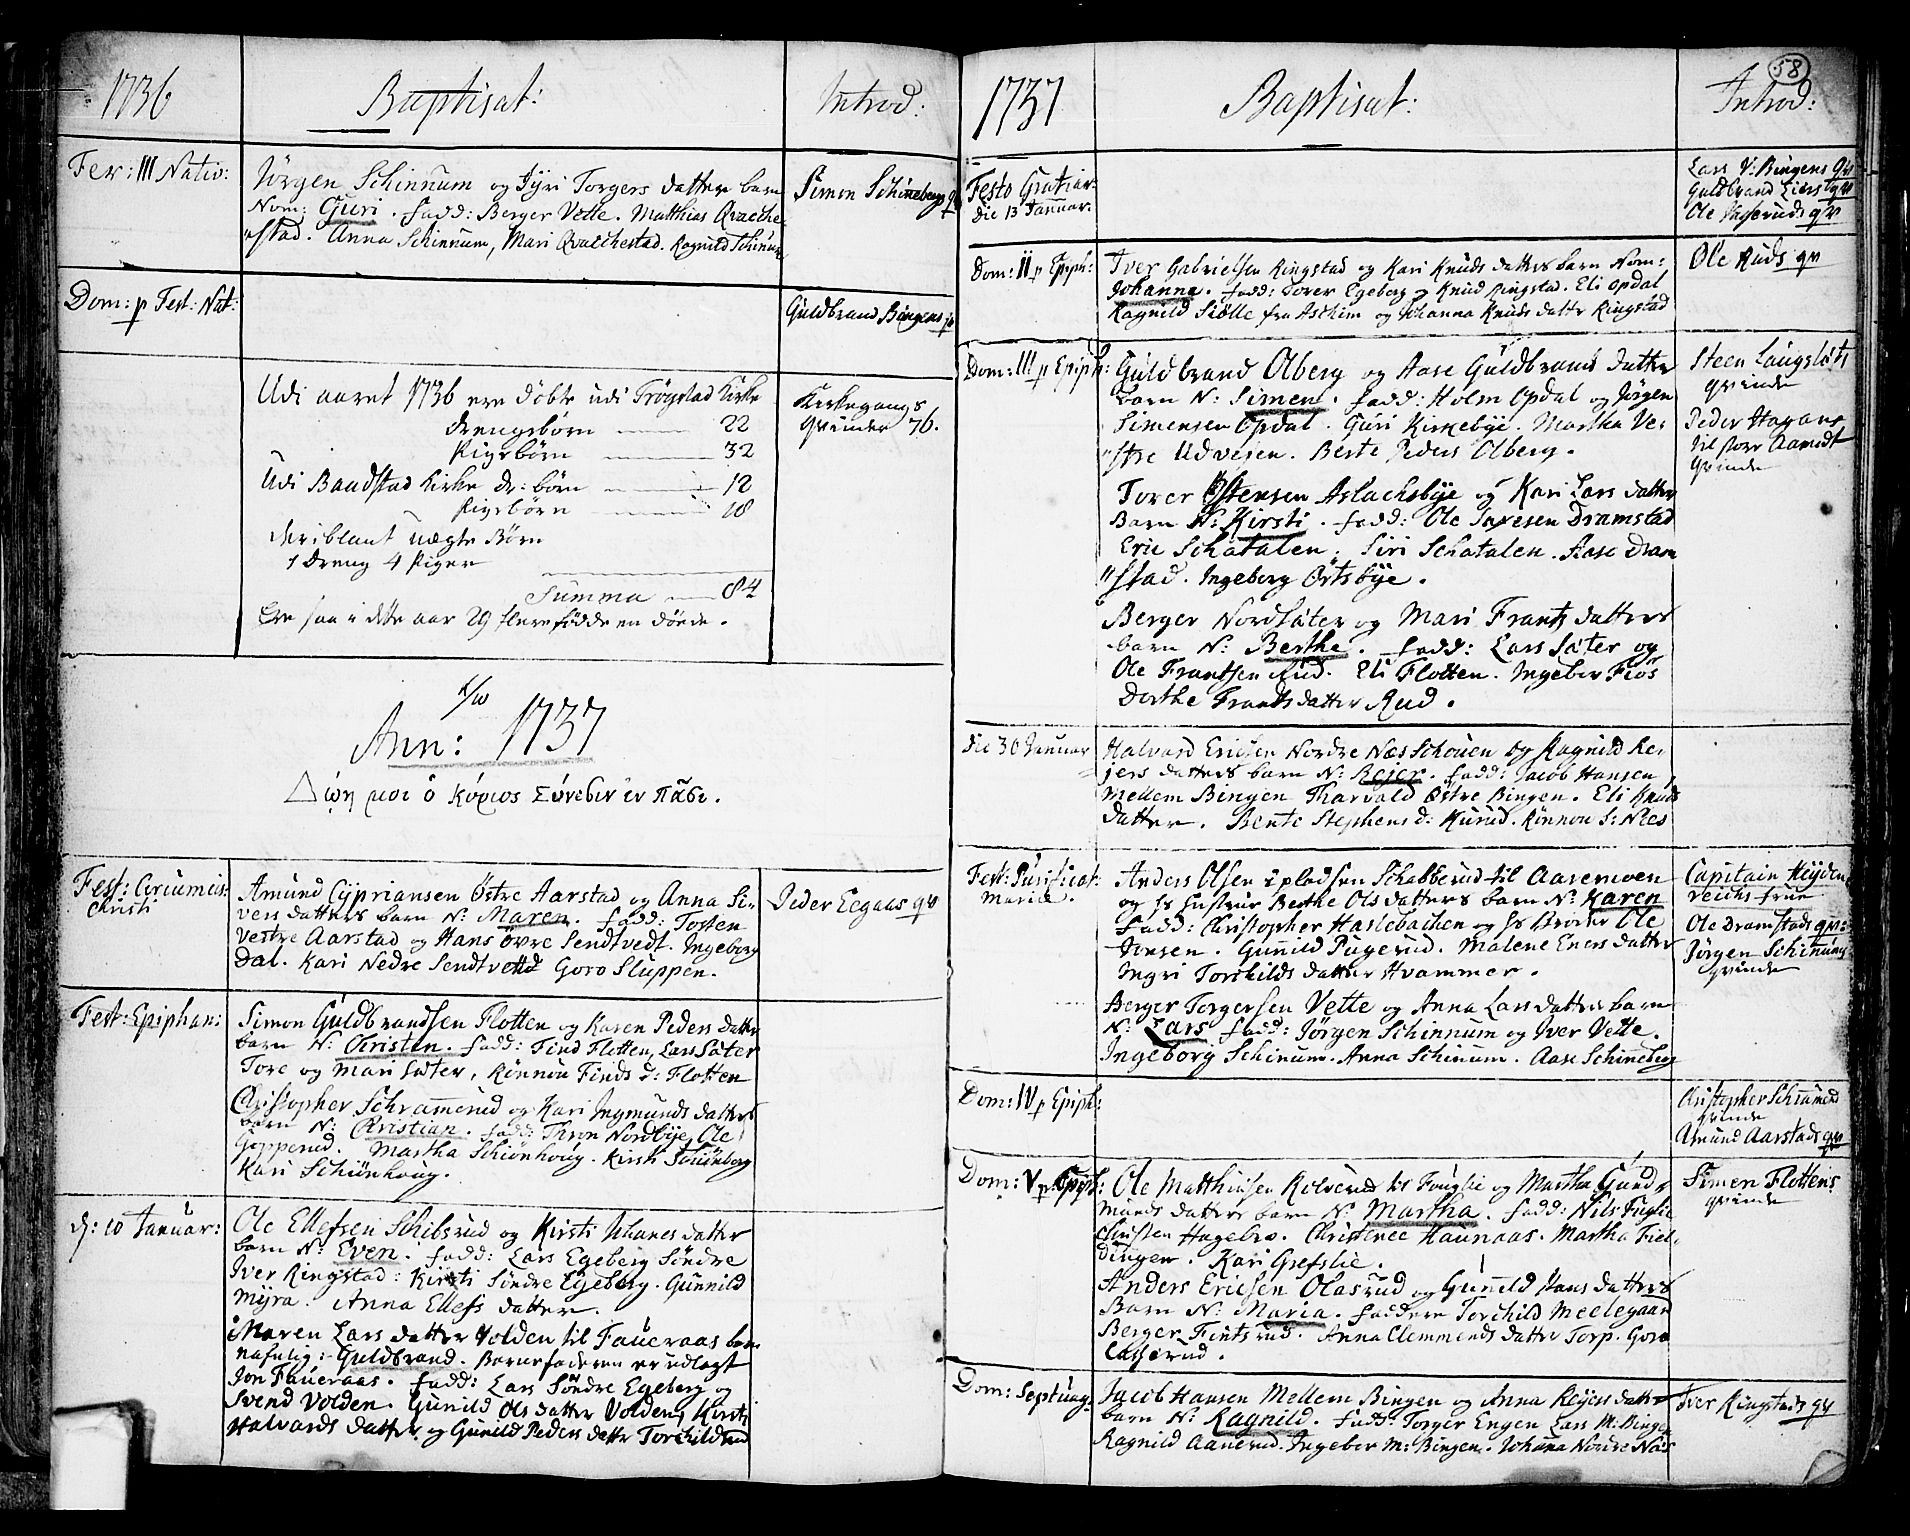 1736 Baptisat: Introd:
Fer: III Nativ:
Jörgen Schinnum og Jyri Torgers datters barn
Nom: Guri. fadd: Berger Vette. Matthias Qvalche
"stad. Anna Schinnum, Mari Qvalchestad. Ragnild Schinnum
Simon Schinebergs qv
Dom: p Fest: Nat:
Guldbrand Bingens qv
Udi aaret 1736 ere döbte udi Trögstad Kirke
drengebörn 22
Pigebörn 32
Udi Baadstad Kirke dr: börn 12
Pigebörn 18
deriblant uægte Börn
1 dreng 4 Piger
Summa 84
Ere saa i dette aar 29 flere födde en döde.
Kirkegangs
Qvinder 76.
Ann: 1737
Δώῃ μοι ὁ κύριος σύνεσιν ἐν πᾶσι.
Fest: Circumcis:
Christi
Amund Cyprianssen Östre Aarstad og Anna Si-
vers datters barn N: Maren. fadd: Torsten
Vestre Aarstad og Hans övre Sendtvedt. Ingeborg
Dal. Kari Nedre Sendtvedt Goro Sluppen.
Peder Eegaas qv
Fest: Epiphan:
Simon Guldbrandsen Flotten og Karen Peders datters
barn N: Christen. fadd: Find Flotten, Lars Sæter
Tore og Mari Sæter, Rönnou Finds d: Flotten
Christopher Schramerud og Kari Ingmunds datters
barn N: Christian. fadd: Thron Nordbye, Ole
Gopperud. Martha Schiönhoug. Kirsti Schiönberg
Kari Schiönhoug.
d: 10 Januar:
Ole Ellefsen Schibsrud og Kirsti Johannes datter
barn N: Even. fadd: Lars Egeberg Söndre
Iver Ringstad: Kirsti Söndre Egeberg. Gunnild
Myra. Anna Ellefs datter.
Maren Lars datter Volden til Faueraas barn
nafnlig: Guldbrand. Barnefaderen er udlagt
Jon Faueraas. fadd: Lars Söndre Egeberg og
Svend Volden. Gunild Ols datter Volden, Kirsti
Halvards datter og Gunild Peders datter Torchildrud
1737 Baptisat: Introd: 58
Festo Gratiar.
die 13 Januar.
Lars V: Bingens Qv
Guldbrand Liers qv
Ole qv
Dom: II p Epiph:
Iver Gabrielsen Ringstad og Kari Knuds datters barn Nom:
Johanne. fadd: Torer Egeberg og Knud Ringstad. Eli Opdal
Ragnild Siölle fra Aschim og Johanna Knuds datter Ringstad
Ole Ruds qv
Dom: III p Epiph:
Guldbrand Olberg og Aase Guldbrands datter
barn N: Simen. fadd: Holm Opdal og Jörgen
Simensen Opdal. Guri Kirkebye. Martha Ve-
"stre Udvesen. Berte Peders Olberg.
Torer Östensen Aslachsbye og Kari Lars datter
Barn N: Kirsti. fadd: Ole Dramstad
Eric Schatalen. Siri Schatalen. Aase Dram
"stad. Ingeborg Örtsbye.
Berger Nordsæter og Mari Frants datters
barn N: Berthe. fadd: Lars Sæter og
Ole Frantsen Rud. Eli Flotten. Ingeber Fiös
Dorthe Frantsdatter Rud.
Steen Langslets
qvinde
Peder Hagens
til store Aamodt
Qvinde
die 30 Januar
Halvard Ericsen Nordre Næs Schouen og Ragnild Re-
jers datters barn N: Rejer. fadd: Jacob Hansen
Mellem Bingen Tharvald Östre Bingen. Eli Knuds
datter. Bente Stephens d: Kurud. Rönnou S: Næs
Fest: Purificat:
Mariæ.
Anders Olsen i pladsen Schabberud til Aaremoen
og hs hustrue Berthe Ols datters barn N: Karen
Fadd: Christopher Haslebachen og hs broder Ole
Jensen. Gunild Pugerud. Malene Eners datter
Ingri Torchilds datter Hvammer.
Berger Torgersen Vette og Anna Lars datters barn
N: Lars fadd: Jörgen Schinnum og Iver Vette.
Ingeborg Schinum. Anna Schinum. Aase Schineberg
Capitain Heyden
reichs frue
Ole Dramstads qv:
Jörgen Schinnums
qvinde
Dom: IV p Epiph:
Christopher Schramerud
qvinde
Amund Aarstads qv
Dom: V p. Epiph:
Ole Matthiesen Kolserud til Fouglie og Martha Gund-
munds datters barn N: Martha. fadd: Nils Fuglie
Christen Hagebro. Christence Haunaas. Martha Fiel-
dingen. Kari Grefslie.
Anders Ericsen Olasrud og Gunild Hans datters
Barn N: Maria. faddere Torchild Meelegaar
Berger Fintsrud. Anna Clemmends datter Torp. Goro
Casserud.
Simen Flottens
qvinde
Dom: Septuag:
Jacob Hansen Mellem Bingen og Anna Rejers datter
barn N: Ragnild. fadd: Torger Engen Lars M: Bingen
Ragnild Aanerud. Ingeber M: Bingen. Johanna Nordre Næs
Iver Ringstads qv